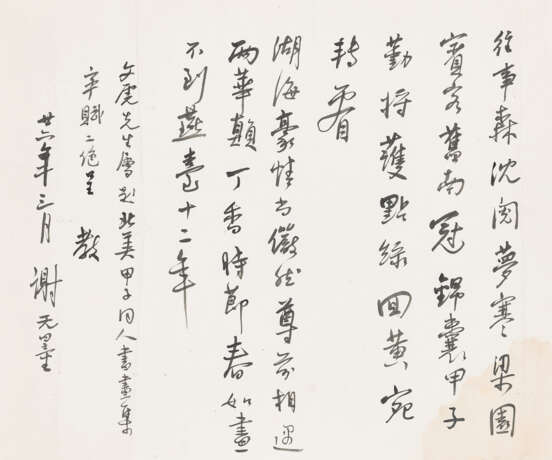 往事森沈閣夢寒梁園
賓客舊南冠錦囊甲子
勤將護點綠回黃宛
轉看
湖海豪情尚儼然尊前相遇
兩華顛丁香時節春如畫
不到燕臺十二年
文虎先生屬題北美甲子同人書畫集
率賦二絕呈 教
廿六年三月 謝无量